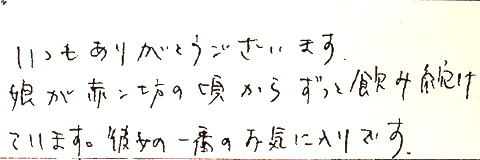 いつもありがとうございます.
娘が赤ン坊の頃からずっと飲み続け
ています。彼女の一番のお気に入りです.